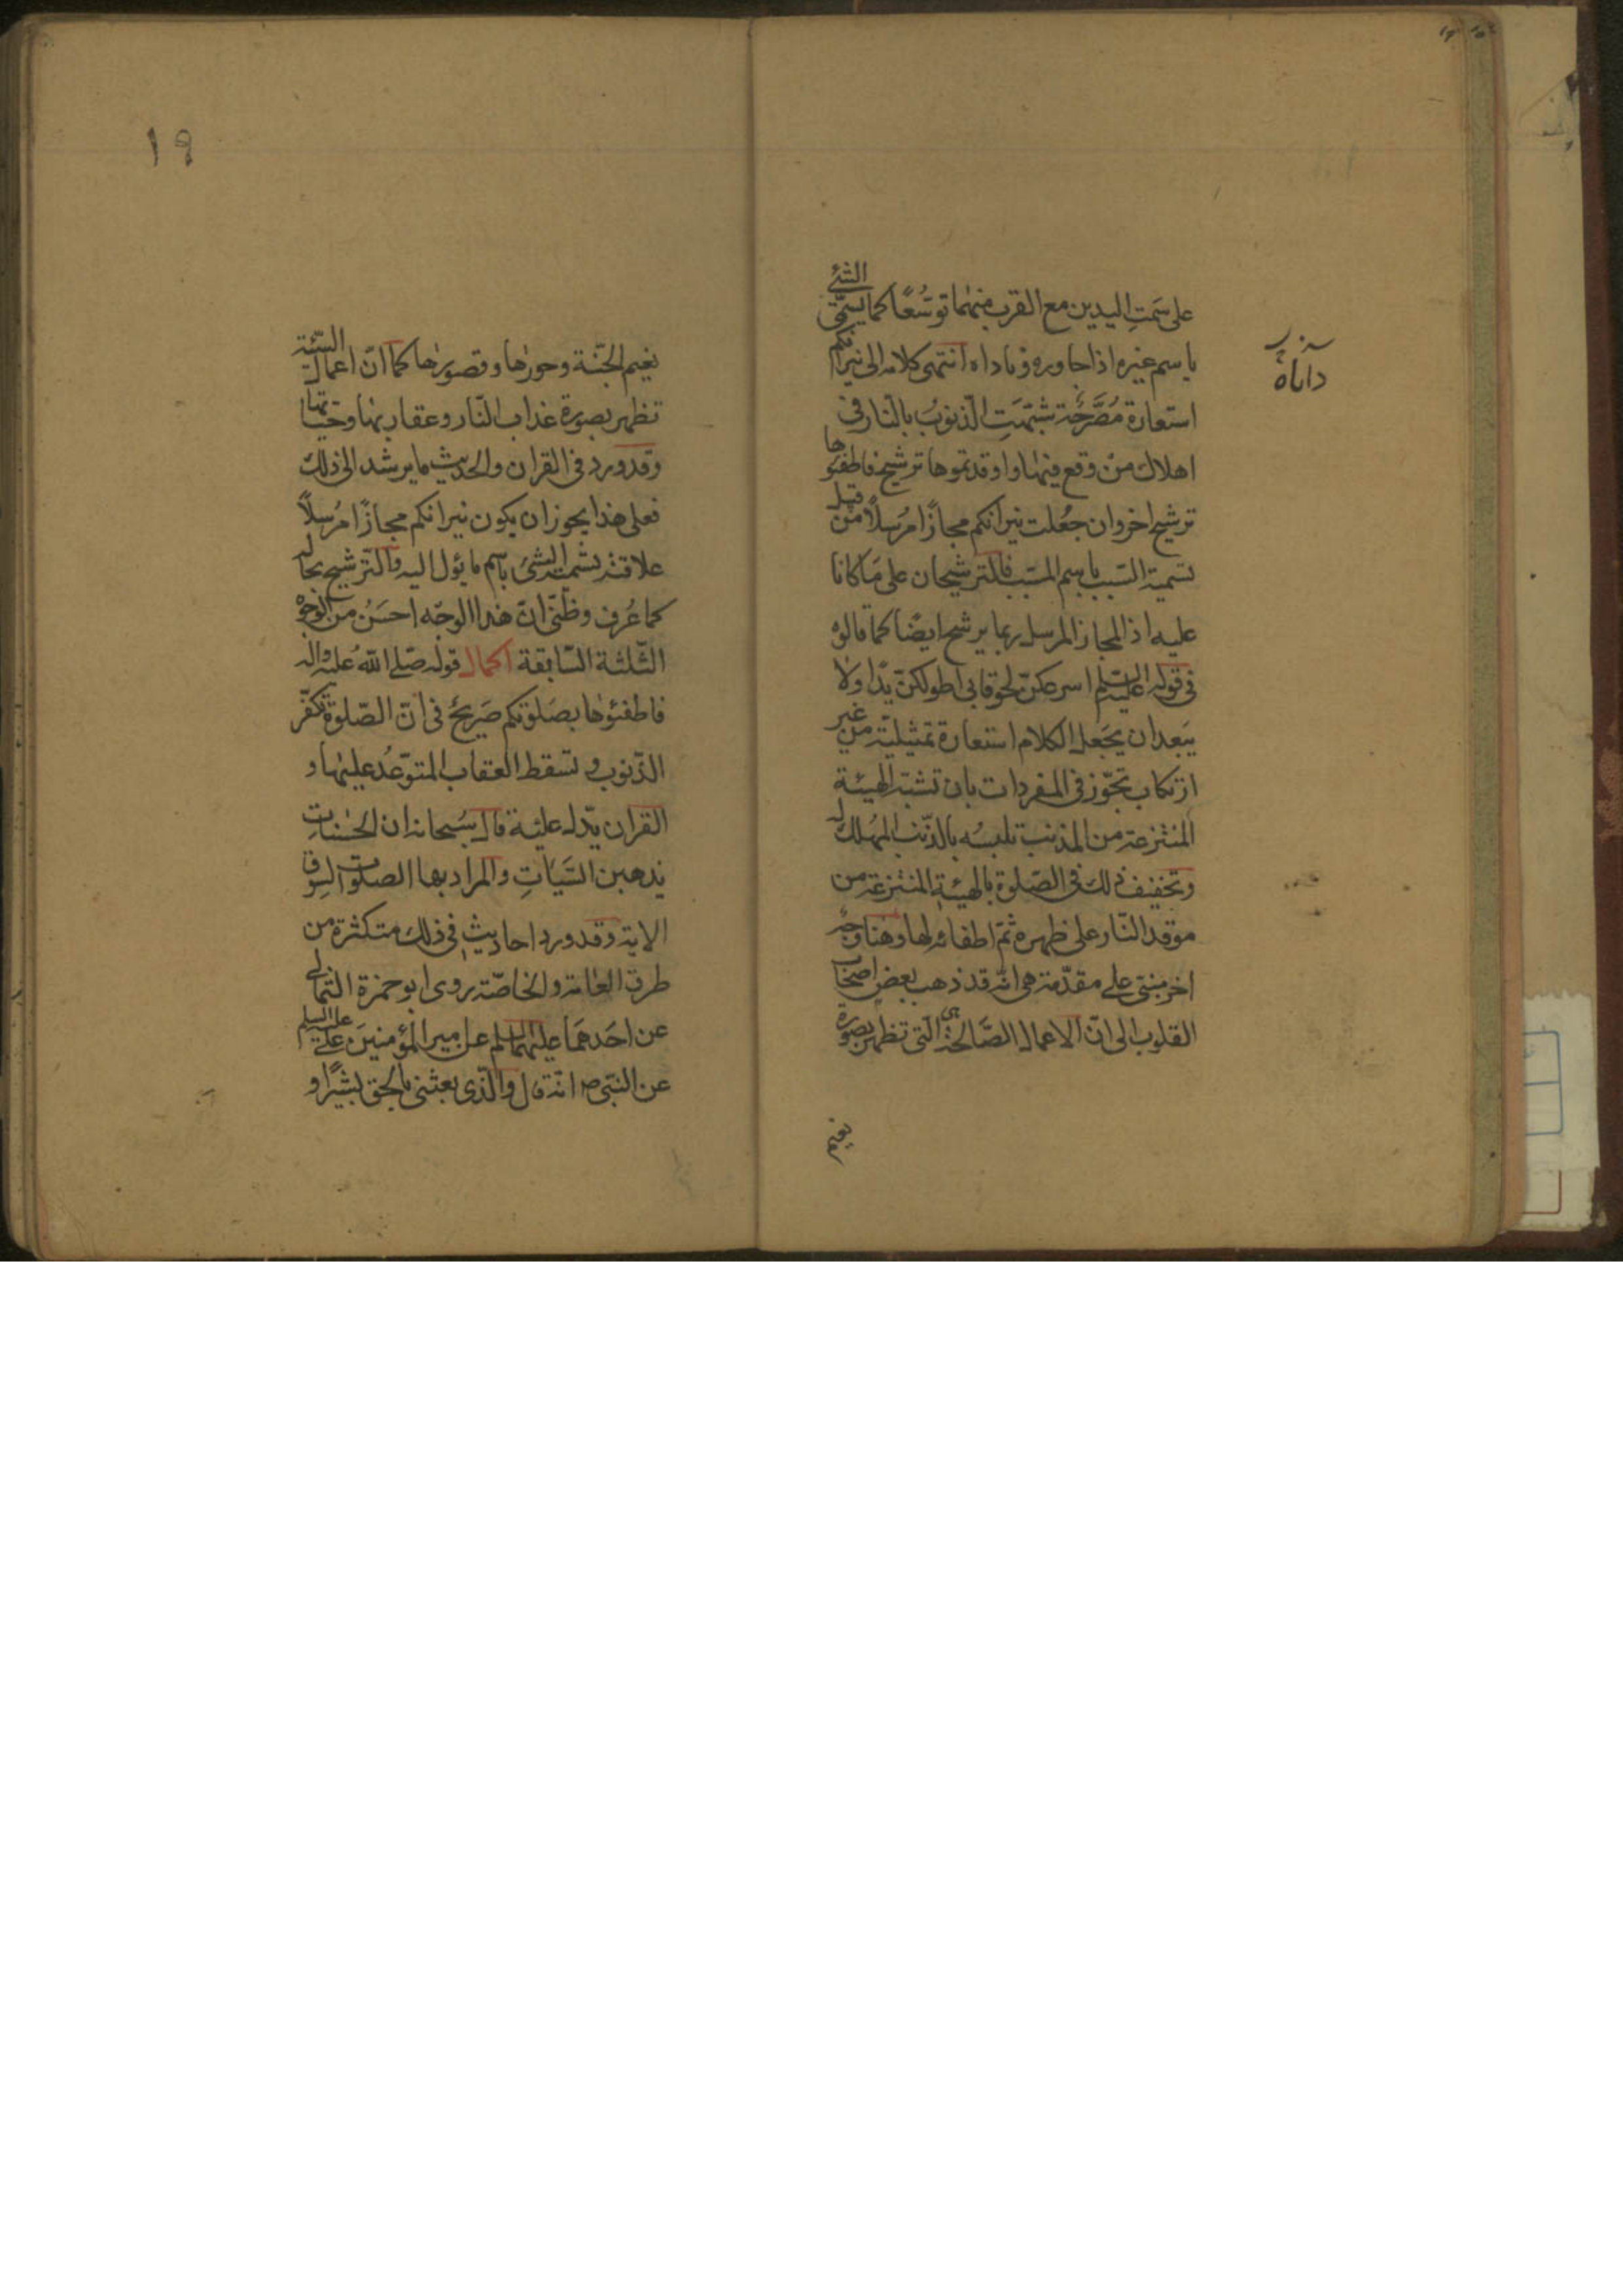 على سَمتِ اليدين مع القرب منهما توسُّعًا كما يسمّى الشئ
باسم غيره اذا جاوره وباداه انتهى كلامه الى نيرانكم
داناه
استعارة مُصَرَّحة شبّهت الذنوبُ بالنّار فى
اهلاك منْ وقع فيها واوقدتموها ترشيح فاطفئوها
ترشيح اخر وان جُعلت نيرانكم مجازًا مُرسلاً من قبيل
تسمية السّبب باسم المسبّب فالترشيحان على مَا كانا
عليه اذ المجاز المرسل ربما يرشح ايضًا كما قالوه
فى قوله عليه السّلم اسرعكنّ لحوقا بى اطولكنّ يدًا ولا
يَبعد ان يجَعل الكلام استعارة تمثيليّة من غير
ارتكاب تجّوز فى المفردات بان تشبّه الهيئة
المنتزعة من المذنب تلبسُه بالذّنب المُهلك له
وتخفيف ذلك فى الصّلوة بالهيئةِ المنتزعة من
موقد النّار على ظهره ثمّ اطفائه لها وهنا وجهٌ
اخر مبنىّ على مقدّمة هى انّه قد ذهب بعض اصحاب
القلوب الى انّ الاعمال الصَّالحة هى التى تظهر بصورة
نعيم
١٩
نعيم الجنّة وحورها وقصورها كما انّ اعمال السّيّئة
تظهر بصورة عذاب النّار وعقاربها وحيّاتها
وقد ورد فى القران والحديث ما يرشد الى ذلك
فعلى هذا يجوز ان يكون نيرانكم مجازًا مُرسلاً
علاقته تسمية الشئ باسم ما يؤل اليه والتّرشيح بحاله
كما عُرف وظنّى انّ هذا الوجه احسَنُ من الوجوهْ
الثّلثة السّابقة اكمال قوله صّلے اللّه عليه واله
فاطفئوها بصَلوتكم صَريحٌ فى انّ الصّلوة تكفّر
الذّنوب وتسقط العقاب المتوّعد عليها و
القران يدّل عليه قال سُبحانه ان الحسنات
يذهبن السَّيّاتِ والمراد بها الصلوات لسوق
الاية وقد ورد احاديث فى ذلك متكثرة من
طرق العامة والخاصّة روى ابو حمزة الثّمالى
عن احَدهمَا عليهما السلم عن امير المؤمنينَ علے عليه السلم
عن النّبّى ص انّه قال والّذى بعثنى بالحق بشيرًا و